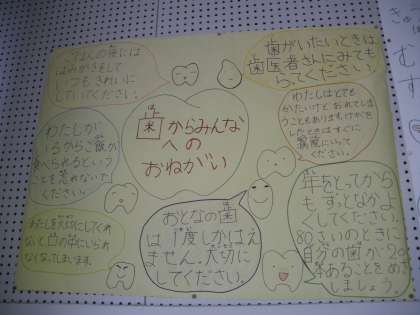 ごはんの後には
はみがきをして
いつもきれいに
していてください。
歯がいたいときは
歯医者さんにみても
らってください。
わたしが
いるからご飯が
食べられるという
ことを忘れないで
ください。
は
歯からみんな
への
おねがい
わたしはとても
かたいけど、おれてしま
うこともあります。けがを
したときはすぐに
病院にいって
ください。
わたしを大切にしてくれ
ないと口の中にいられ
なくなってしまいます。
おとなの歯
は1度しかはえ
ません。大切に
してください。
年をとってから
もずっとなかよ
くしてください。
80さいのときに
自分の歯が20
本あることをめざ
しましょう。
きゅ
む
す